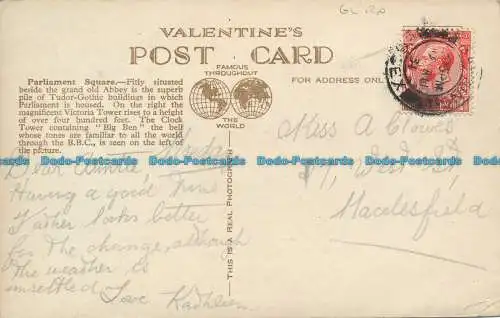 GL RP
VALENTINE'S
POST CARD
FAMOUS
THROUGHOUT
THE
WORLD
FOR ADDRESS ONLY
Parliament Square.—Fitly situated
beside the grand old Abbey is the superb
pile of Tudor-Gothic buildings in which
Parliament is housed. On the right the
magnificent Victoria Tower rises to a height
of over four hundred feet. The Clock
Tower containing "Big Ben" the bell
whose tones are familiar to all the world
through the B.B.C., is seen on the left of
the picture.
THIS IS A REAL PHOTOGRAPH
Dear Auntie,
Having a good time
Father looks better
for the change, although
the weather is
unsettled. Love Kathleen
Miss A Clowes
West St
Macclesfield
Bluepointbooks